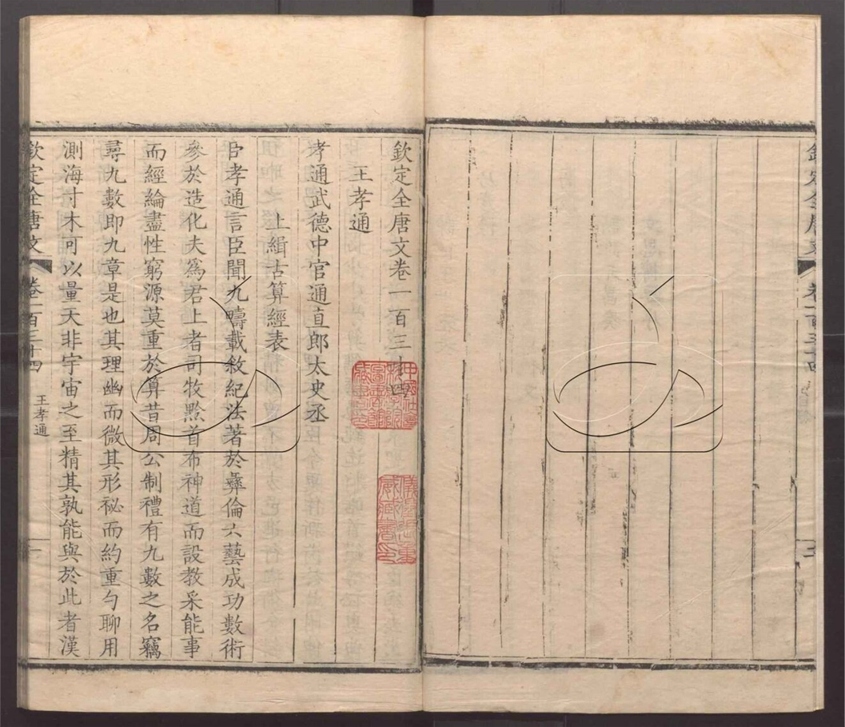 欽定全唐文
卷一百三十四
欽定全唐文卷一百三十四
王孝通
孝通武德中官通直郎太史丞
上緝古算經表
臣孝通言臣聞九疇載敘紀法著於彝倫六藝成功數術
參於造化夫為君上者司牧黔首布神道而設教采能事
而經綸盡性窮源莫重於算昔周公制禮有九數之名竊
尋九數即九章是也其理幽而微其形祕而約重勾聊用
測海寸木可以量天非宇宙之至精其孰能與於此者漢
欽定全唐文
卷一百三十四
王孝通
一